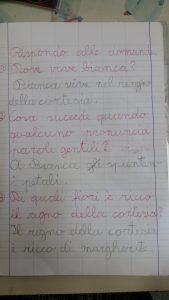 Rispondo alle domande
1 Dove vive bianca?
Bianca vive nel regno
della cortesia.
2 Cosa succede quando
qualcuno pronuncia
parole gentili?
A Bianca spuntano
i petali.
3 Di quali fiori è ricco
il regno della cortesia?
Il regno della cortesia
è ricco di margherite.